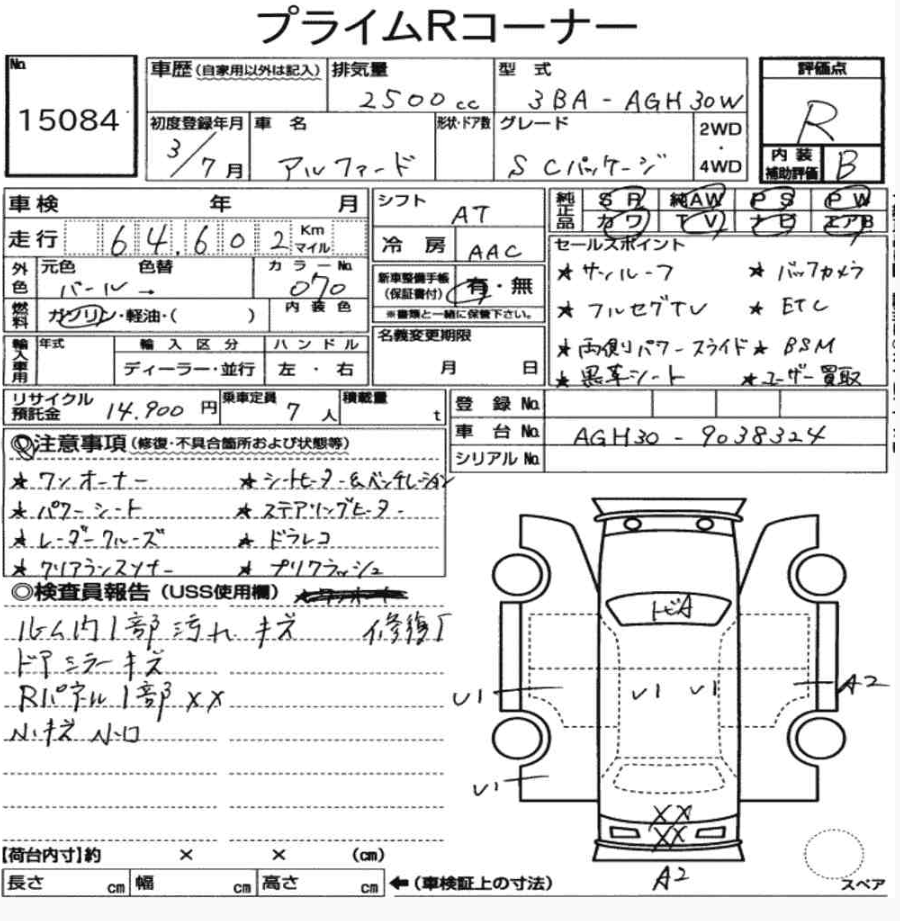 プライムRコーナー
No.
15084
車歴(自家用以外は記入)
排気量
2500cc
型式
3BA-AGH30W
評価点
R
内装補助評価
B
初度登録年月
3/7月
車名
アルファード
形状・ドア数
グレード
SCパッケージ
2WD
・
4WD
車検 年 月
シフト
AT
純正品
SR 純AW PS PW
カワ TV ナビ エアB
走行 64,602 Km マイル
冷房
AAC
セールスポイント
★サンルーフ ★バックカメラ
★フルセグTV ★ETC
★両側パワースライド ★BSM
★黒革シート ★ユーザー買取
外色
元色 色替
パール →
カラーNo.
070
新車整備手帳(保証書付)
有・無
※書類と一緒に保管下さい。
燃料
ガソリン・軽油・( )
内装色
名義変更期限
月 日
輸入車用
年式
輸入区分
ディーラー・並行
ハンドル
左・右
リサイクル預託金
14,900円
乗車定員
7人
積載量
t
登録No.
車台No.
AGH30-9038324
シリアルNo.
◎注意事項(修復・不具合箇所および状態等)
★ワンオーナー ★シートヒーター&ベンチレーション
★パワーシート ★ステアリングヒーター
★レーダークルーズ ★ドラレコ
★クリアランスソナー ★プリクラッシュ
◎検査員報告(USS使用欄)
ルーム内1部汚れ キズ
ドアミラーキズ
Rパネル1部XX
小キズ 小凹
トビA
U1
U1 U1
A2
U1
XX
XX
A2
【荷台内寸】約 × × (cm)
長さ cm 幅 cm 高さ cm
←(車検証上の寸法)
スペア